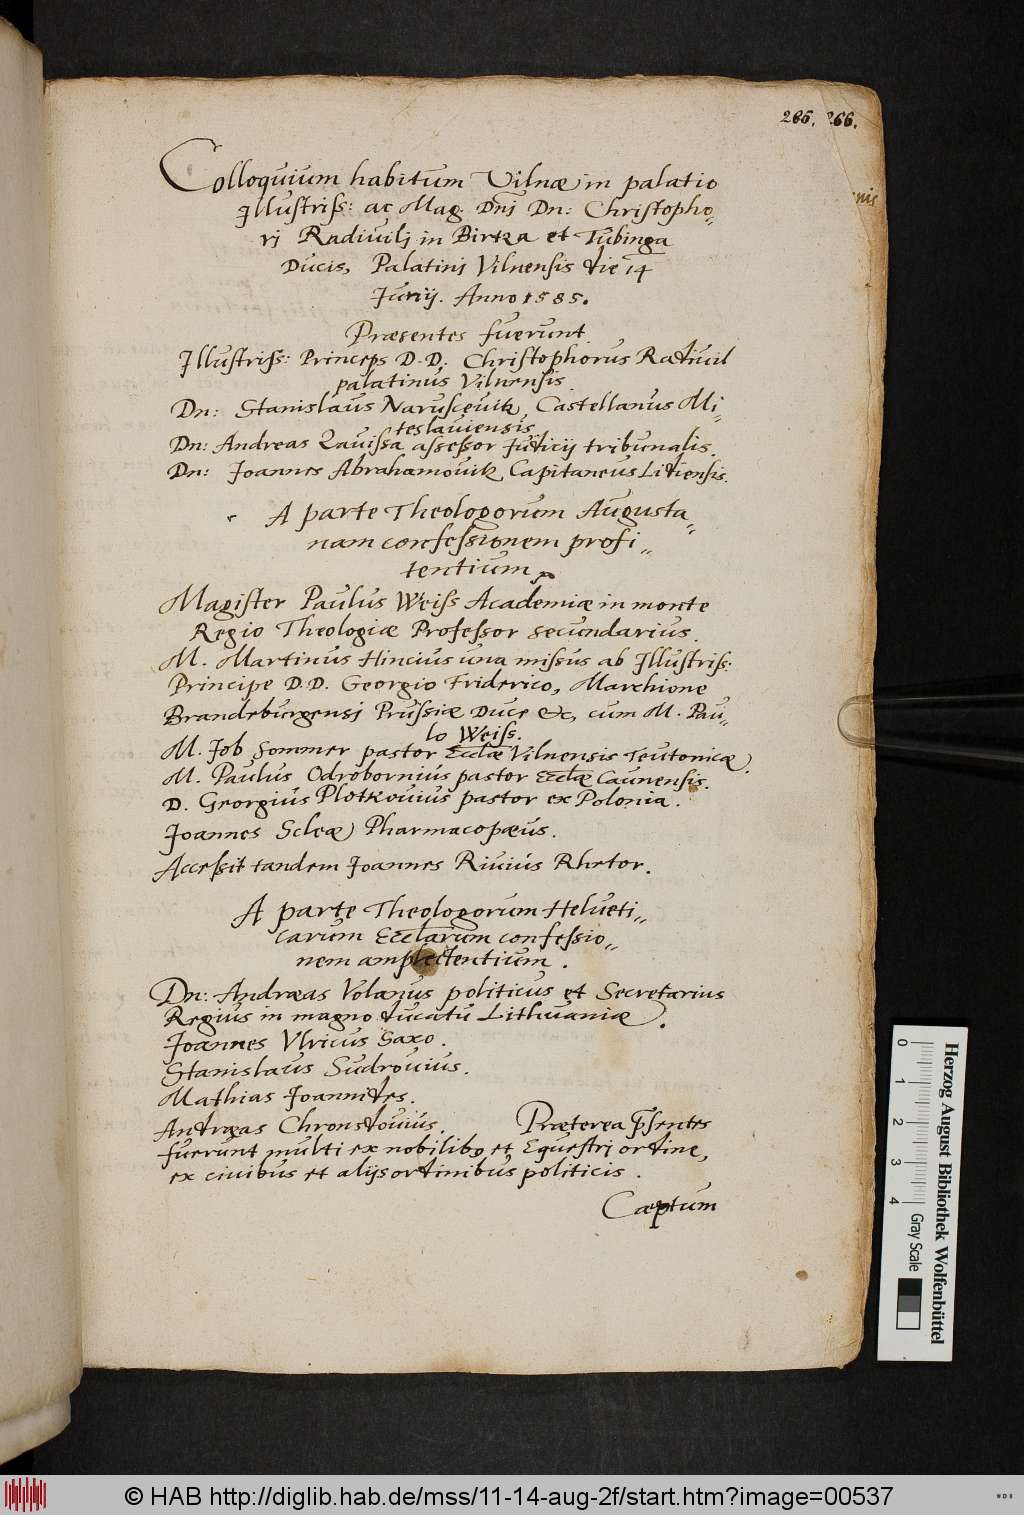 266. 266.
nis
Colloquium habitum Vilnæ in palatio
Illustriss: ac Mag. Dnj Dn: Christopho„
rj Radiuilj in Birtza et Tubinga
Ducis, Palatinj Vilnensis die 14
Junij. Anno 1585.
Præsentes fuerunt.
Illustriss: Princeps D. D. Christophorus Radiuil
palatinus Vilnensis.
Dn: Stanislaus Naruscevitz, Castellanus Mi„
teslauiensis
Dn: Andreas Zauissa assessor Judicij tribunalis.
Dn: Joannes Abrahamouitz Capitaneus Lidiensis.
A parte Theologorum Augusta„
nam confessionem profi„
tentium
Magister Paulus Weiss Academiæ in monte
Regio Theologiæ Professor secundarius.
M. Martinus Hincius una missus ab Illustriss:
Principe D. D. Georgio Friderico, Marchione
Brandeburgensj Prussiæ Duce &c, cum M. Pau„
lo Weiss.
M. Job Sommer pastor Ecclæ Vilnensis Teutonicæ.
M. Paulus Odrobornius pastor Ecclæ Caunensis.
D. Georgius Plotkouius pastor ex Polonia.
Joannes Scleæ Pharmacopæus.
Accessit tandem Joannes Riuius Rhetor.
A parte Theologorum Helueti„
carum Ecclarum confessio„
nem amplectentium.
Dn: Andræas Volanus politicus et Secretarius
Regius in magno ducatu Lithuaniæ.
Joannes Vlricus Saxo.
Stanislaus Sudrouius.
Mathias Joannides.
Andræas Chronstouius. Præterea psentes
fuerunt multi ex nobilibq et Equestrj ordine,
ex ciuibus et alijs ordinibus politicis.
Captum
Herzog August Bibliothek Wolfenbüttel
0 1 2 3 4 Gray Scale
© HAB http://diglib.hab.de/mss/11-14-aug-2f/start.htm?image=00537